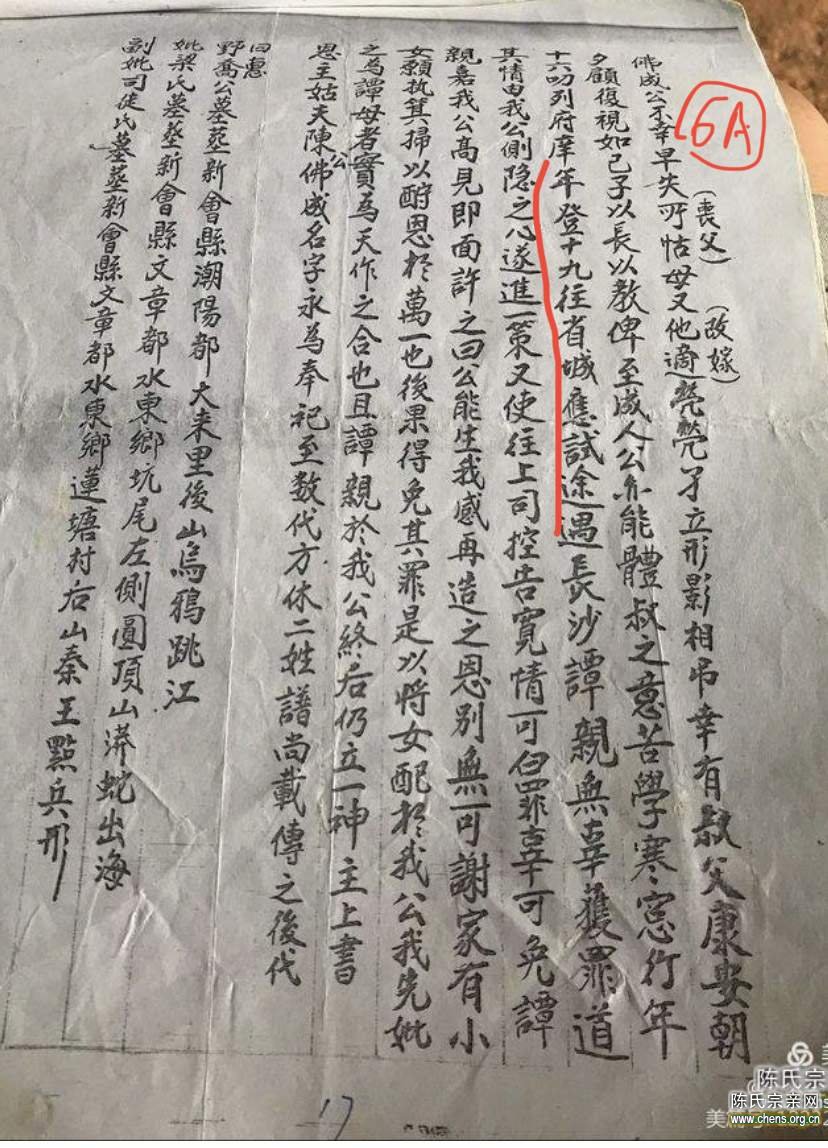 6A
(喪父)
(改嫁)
佛成公不幸早失所怙母又他適煢煢孑立形影相吊幸有叔父康安朝
夕顧復視如己子以長以教俾至成人公亦能體叔之意苦學寒窓行年
十六叨列府庠年登十九往省城應試途遇長沙譚親無辜獲罪道
其情由我公側隐之心遂進一策又使往上司控告寬情可白罪辜可免譚
親嘉我公高見即面許之曰公能生我感再造之恩别無可謝家有小
女願执箕掃以酧恩於萬一也後果得免其罪是以將女配於我公我先妣
之為譚母者實為天作之合也且譚親於我公終后仍立一神主上書
恩主姑夫陳公佛成名字永為奉祀至数代方休二姓譜尚載傳之後代
曰惠
野喬公墓葬新會縣潮陽都大来里後山烏鴉跳江
妣梁氏墓葬新會縣文章都水東鄉坑尾左側圓頂山蟒蛇出海
副妣司徒氏墓葬新會縣文章都水東鄉蓮塘村右山秦王點兵形
17
陈氏宗
陈氏宗亲网
www.chens.org.cn